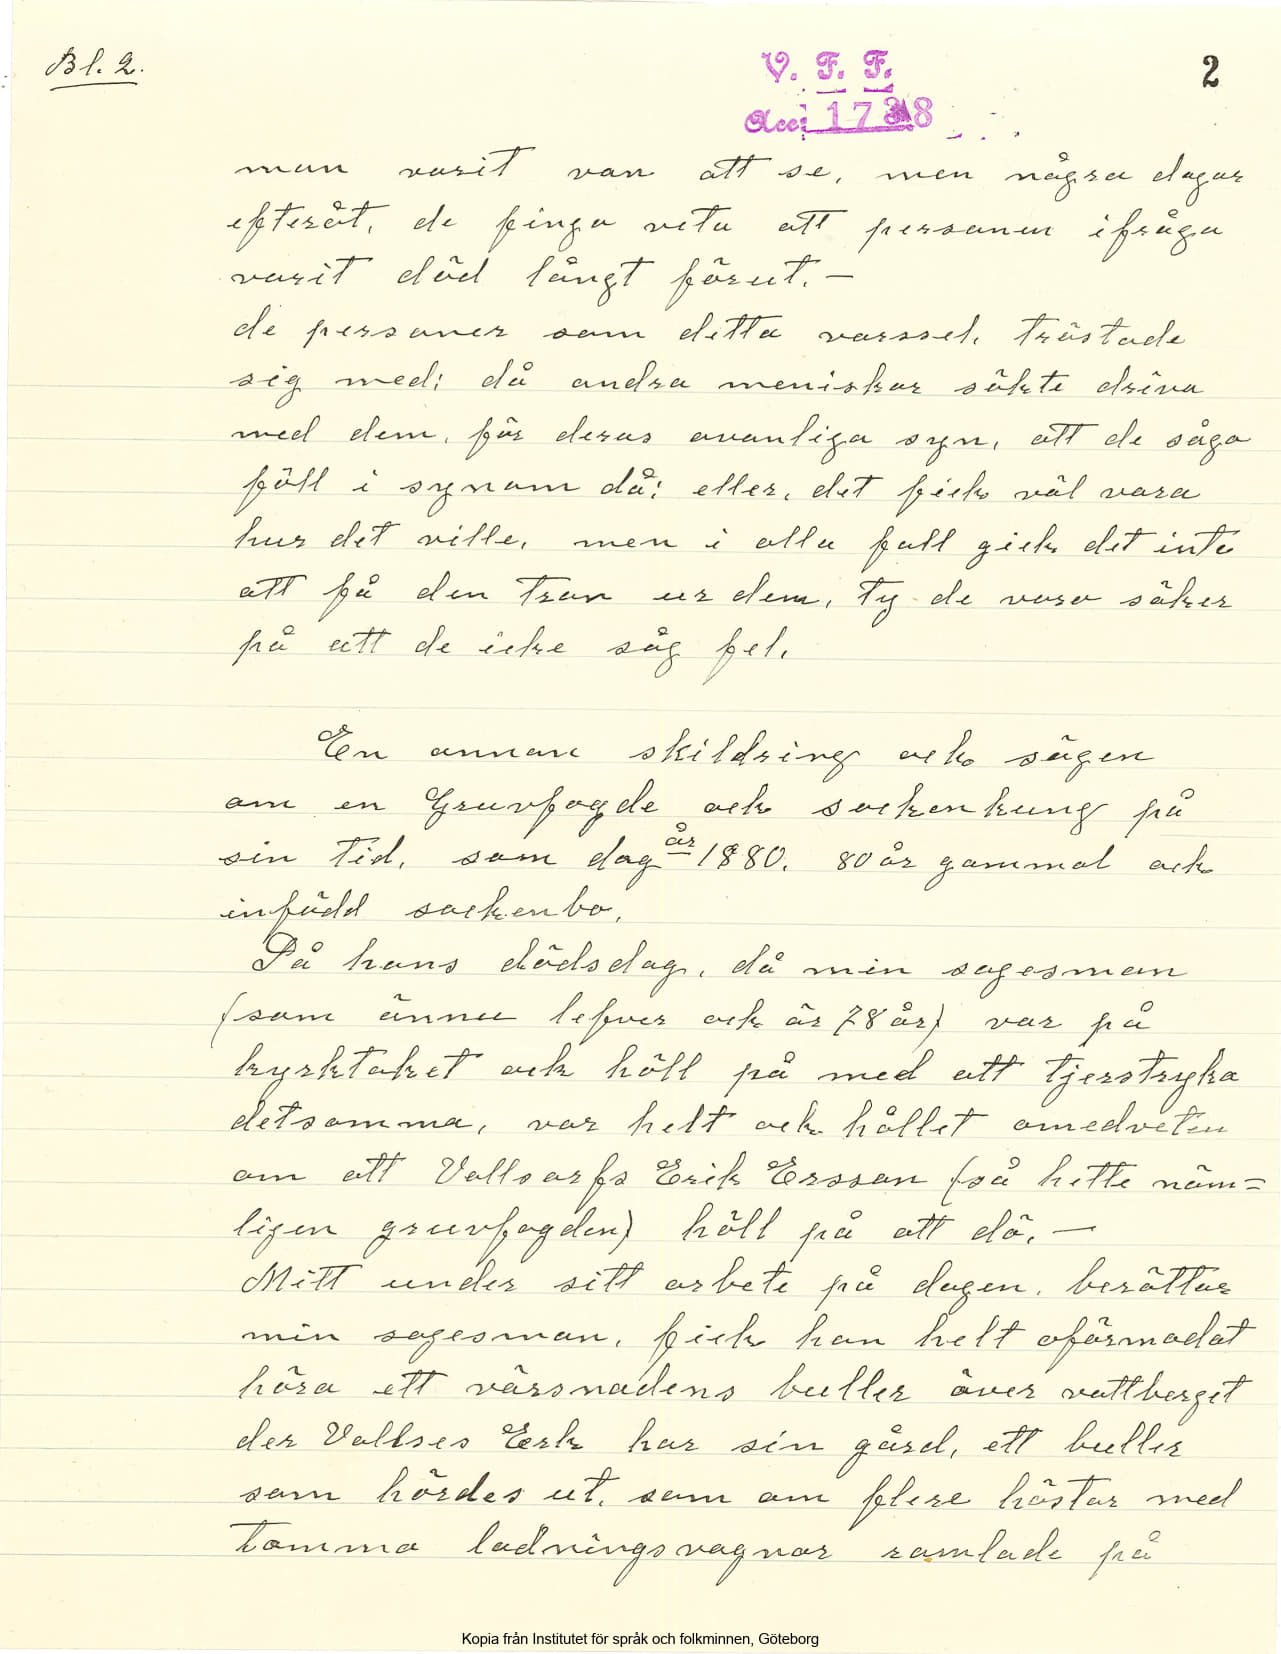 Bl. 2.
V. F. F.
2
Acc: 1738
man varit van att se, men några dagar
efteråt, de finga veta att personen ifråga
varit död långt förut. —
de personer som detta varssel, tröstade
sig med; då andra meniskor sökte driva
med dem, för deras ovanliga syn, att de såga
föll i synom då; eller, det fick väl vara
hur det ville, men i alla fall gick det inte
att få den tron ur dem, ty de voro säker
på att de icke såg fel.
En annan skildring ock sägen
om en Gruvfogde ock sockenkung på
sin tid, som dog år 1880. 80 år gammal ock
infödd sockenbo.
På hans dödsdag, då min sagesman
(som ännu lefver ock är 78 år) var på
kyrktaket ock höll på med att tjerstryka
detsamma, var helt ock hållet omedveten
om att Vallsarfs Erik Ersson (så hette näm=
ligen gruvfogden) höll på att dö. —
Mitt under sitt arbete på dagen, berättar
min sagesman, fick han helt oförmodat
höra ett vårsnadens buller över vattberget
der Vallses Erk har sin gård, ett buller
som hördes ut, som om flere hästar med
tomma ladningsvagnar ramlade på
Kopia från Institutet för språk och folkminnen, Göteborg